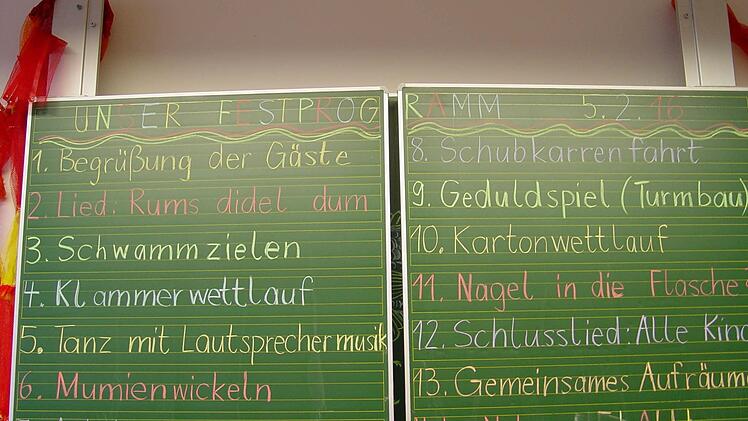 UNSER FESTPROGRAMM 5.2.16
1. Begrüßung der Gäste
2. Lied: Rums didel dum
3. Schwammzielen
4. Klammerwettlauf
5. Tanz mit Lautsprechermusik
6. Mumienwickeln
8. Schubkarrenfahrt
9. Geduldspiel (Turmbau)
10. Kartonwettlauf
11. Nagel in die Flasche
12. Schlusslied: Alle
13. Gemeinsames